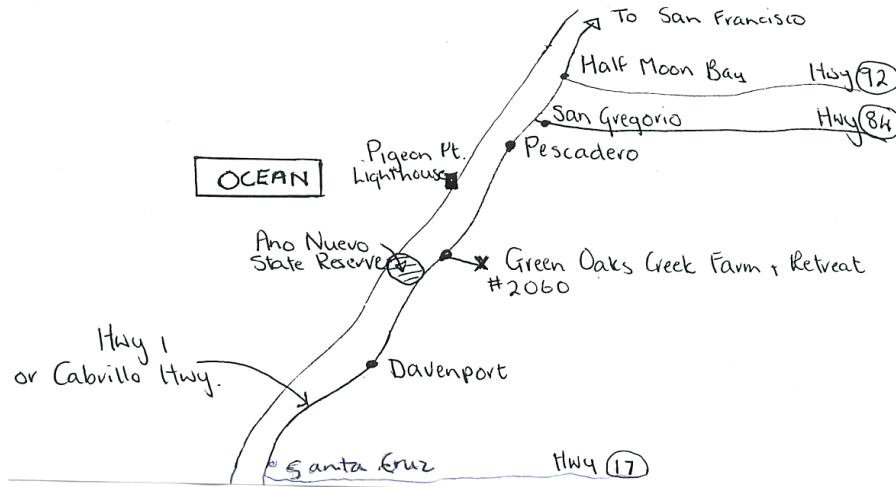 To San Francisco
Half Moon Bay Hwy 92
San Gregorio Hwy 84
Pescadero
Pigeon Pt.
Lighthouse
OCEAN
Ano Nuevo
State Reserve
Green Oaks Creek Farm + Retreat
#2060
Hwy 1
or Cabrillo Hwy.
Davenport
Santa Cruz Hwy 17